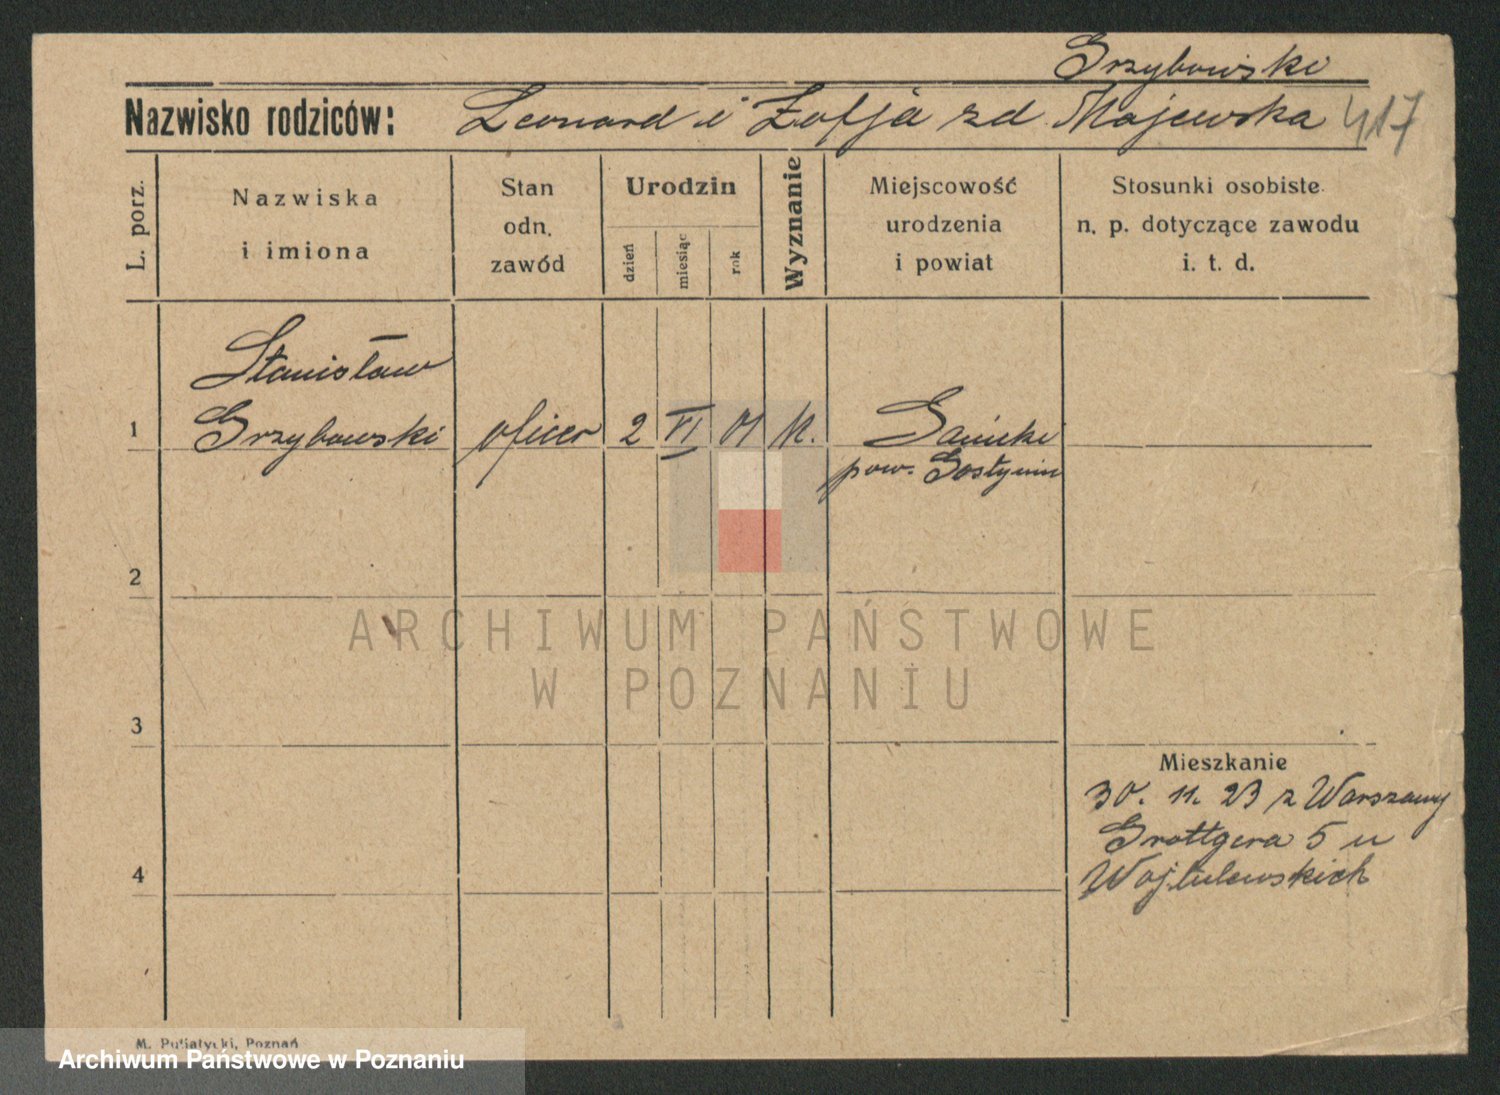 Grzybowski
Nazwisko rodziców: Leonard i Zofja zd Majewska 417
L. porz.
Nazwiska
i imiona
Stan
odn.
zawód
Urodzin
dzień
miesiąc
rok
Wyznanie
Miejscowość
urodzenia
i powiat
Stosunki osobiste
n. p. dotyczące zawodu
i. t. d.
Stanisław
1 Grzybowski oficer 2 VI 01 k. Sanicki
pow. Gostynin
2
ARCHIWUM PAŃSTWOWE
W POZNANIU
3
Mieszkanie
30. 11. 23 z Warszawy
Grottgera 5 u
4 Wojtulewskich
M. Putiatycki, Poznań
Archiwum Państwowe w Poznaniu